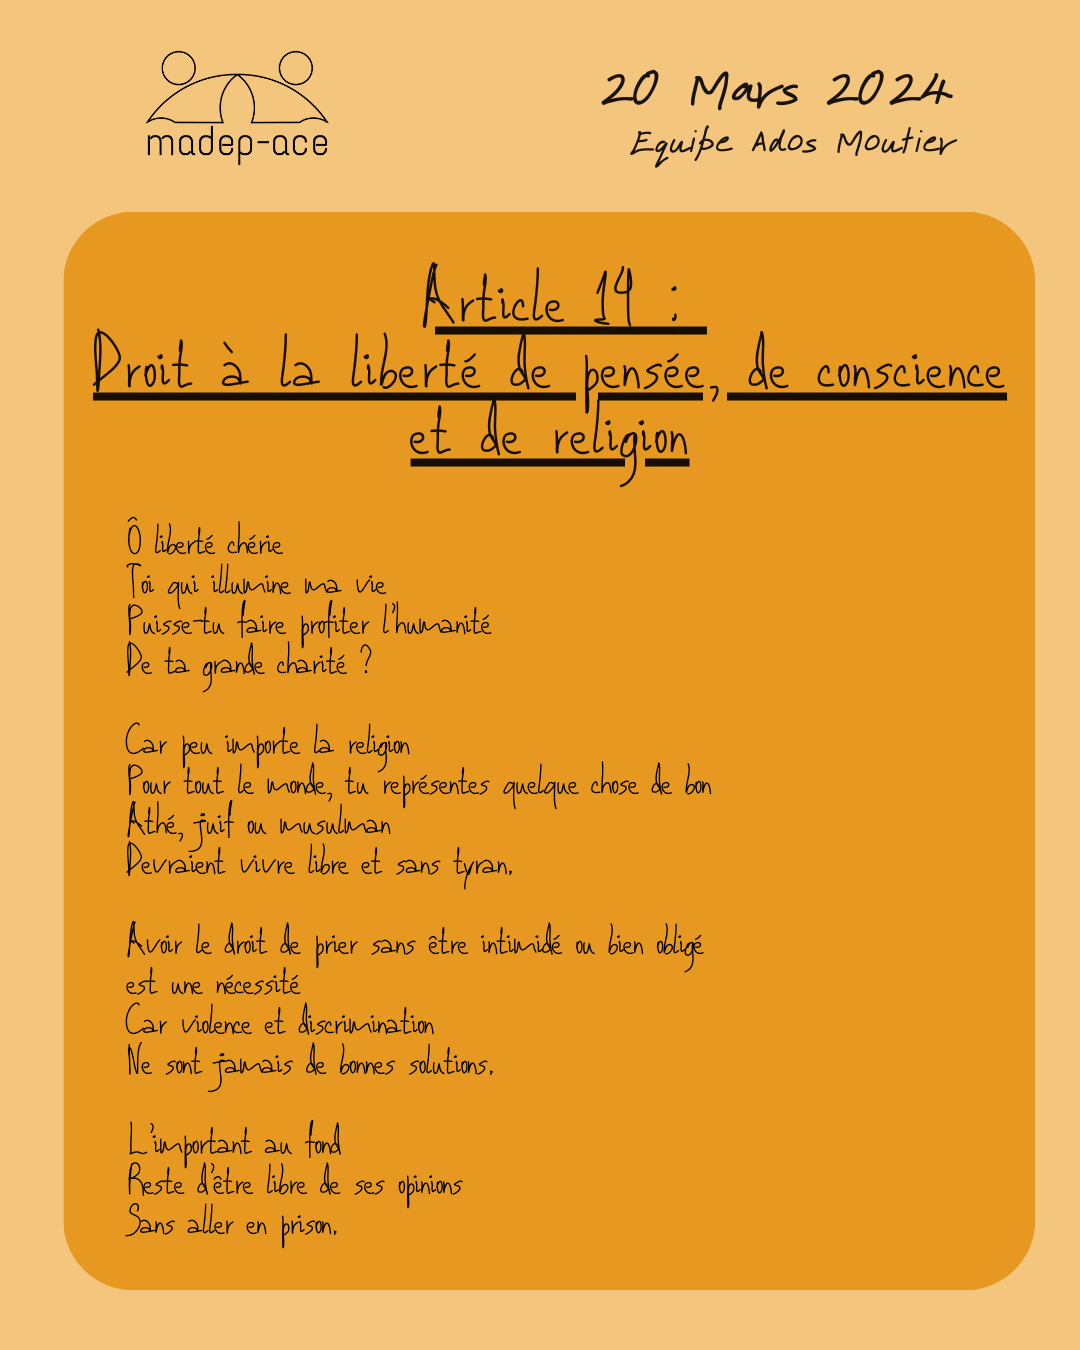 madep-ace
20 Mars 2024
Equipe Ados Moutier
Article 14 :
Droit à la liberté de pensée, de conscience
et de religion
Ô liberté chérie
Toi qui illumine ma vie
Puisse-tu faire profiter l'humanité
De ta grande charité ?
Car peu importe la religion
Pour tout le monde, tu représentes quelque chose de bon
Athé, juif ou musulman
Devraient vivre libre et sans tyran.
Avoir le droit de prier sans être intimidé ou bien obligé
est une nécessité
Car violence et discrimination
Ne sont jamais de bonnes solutions.
L'important au fond
Reste d'être libre de ses opinions
Sans aller en prison.